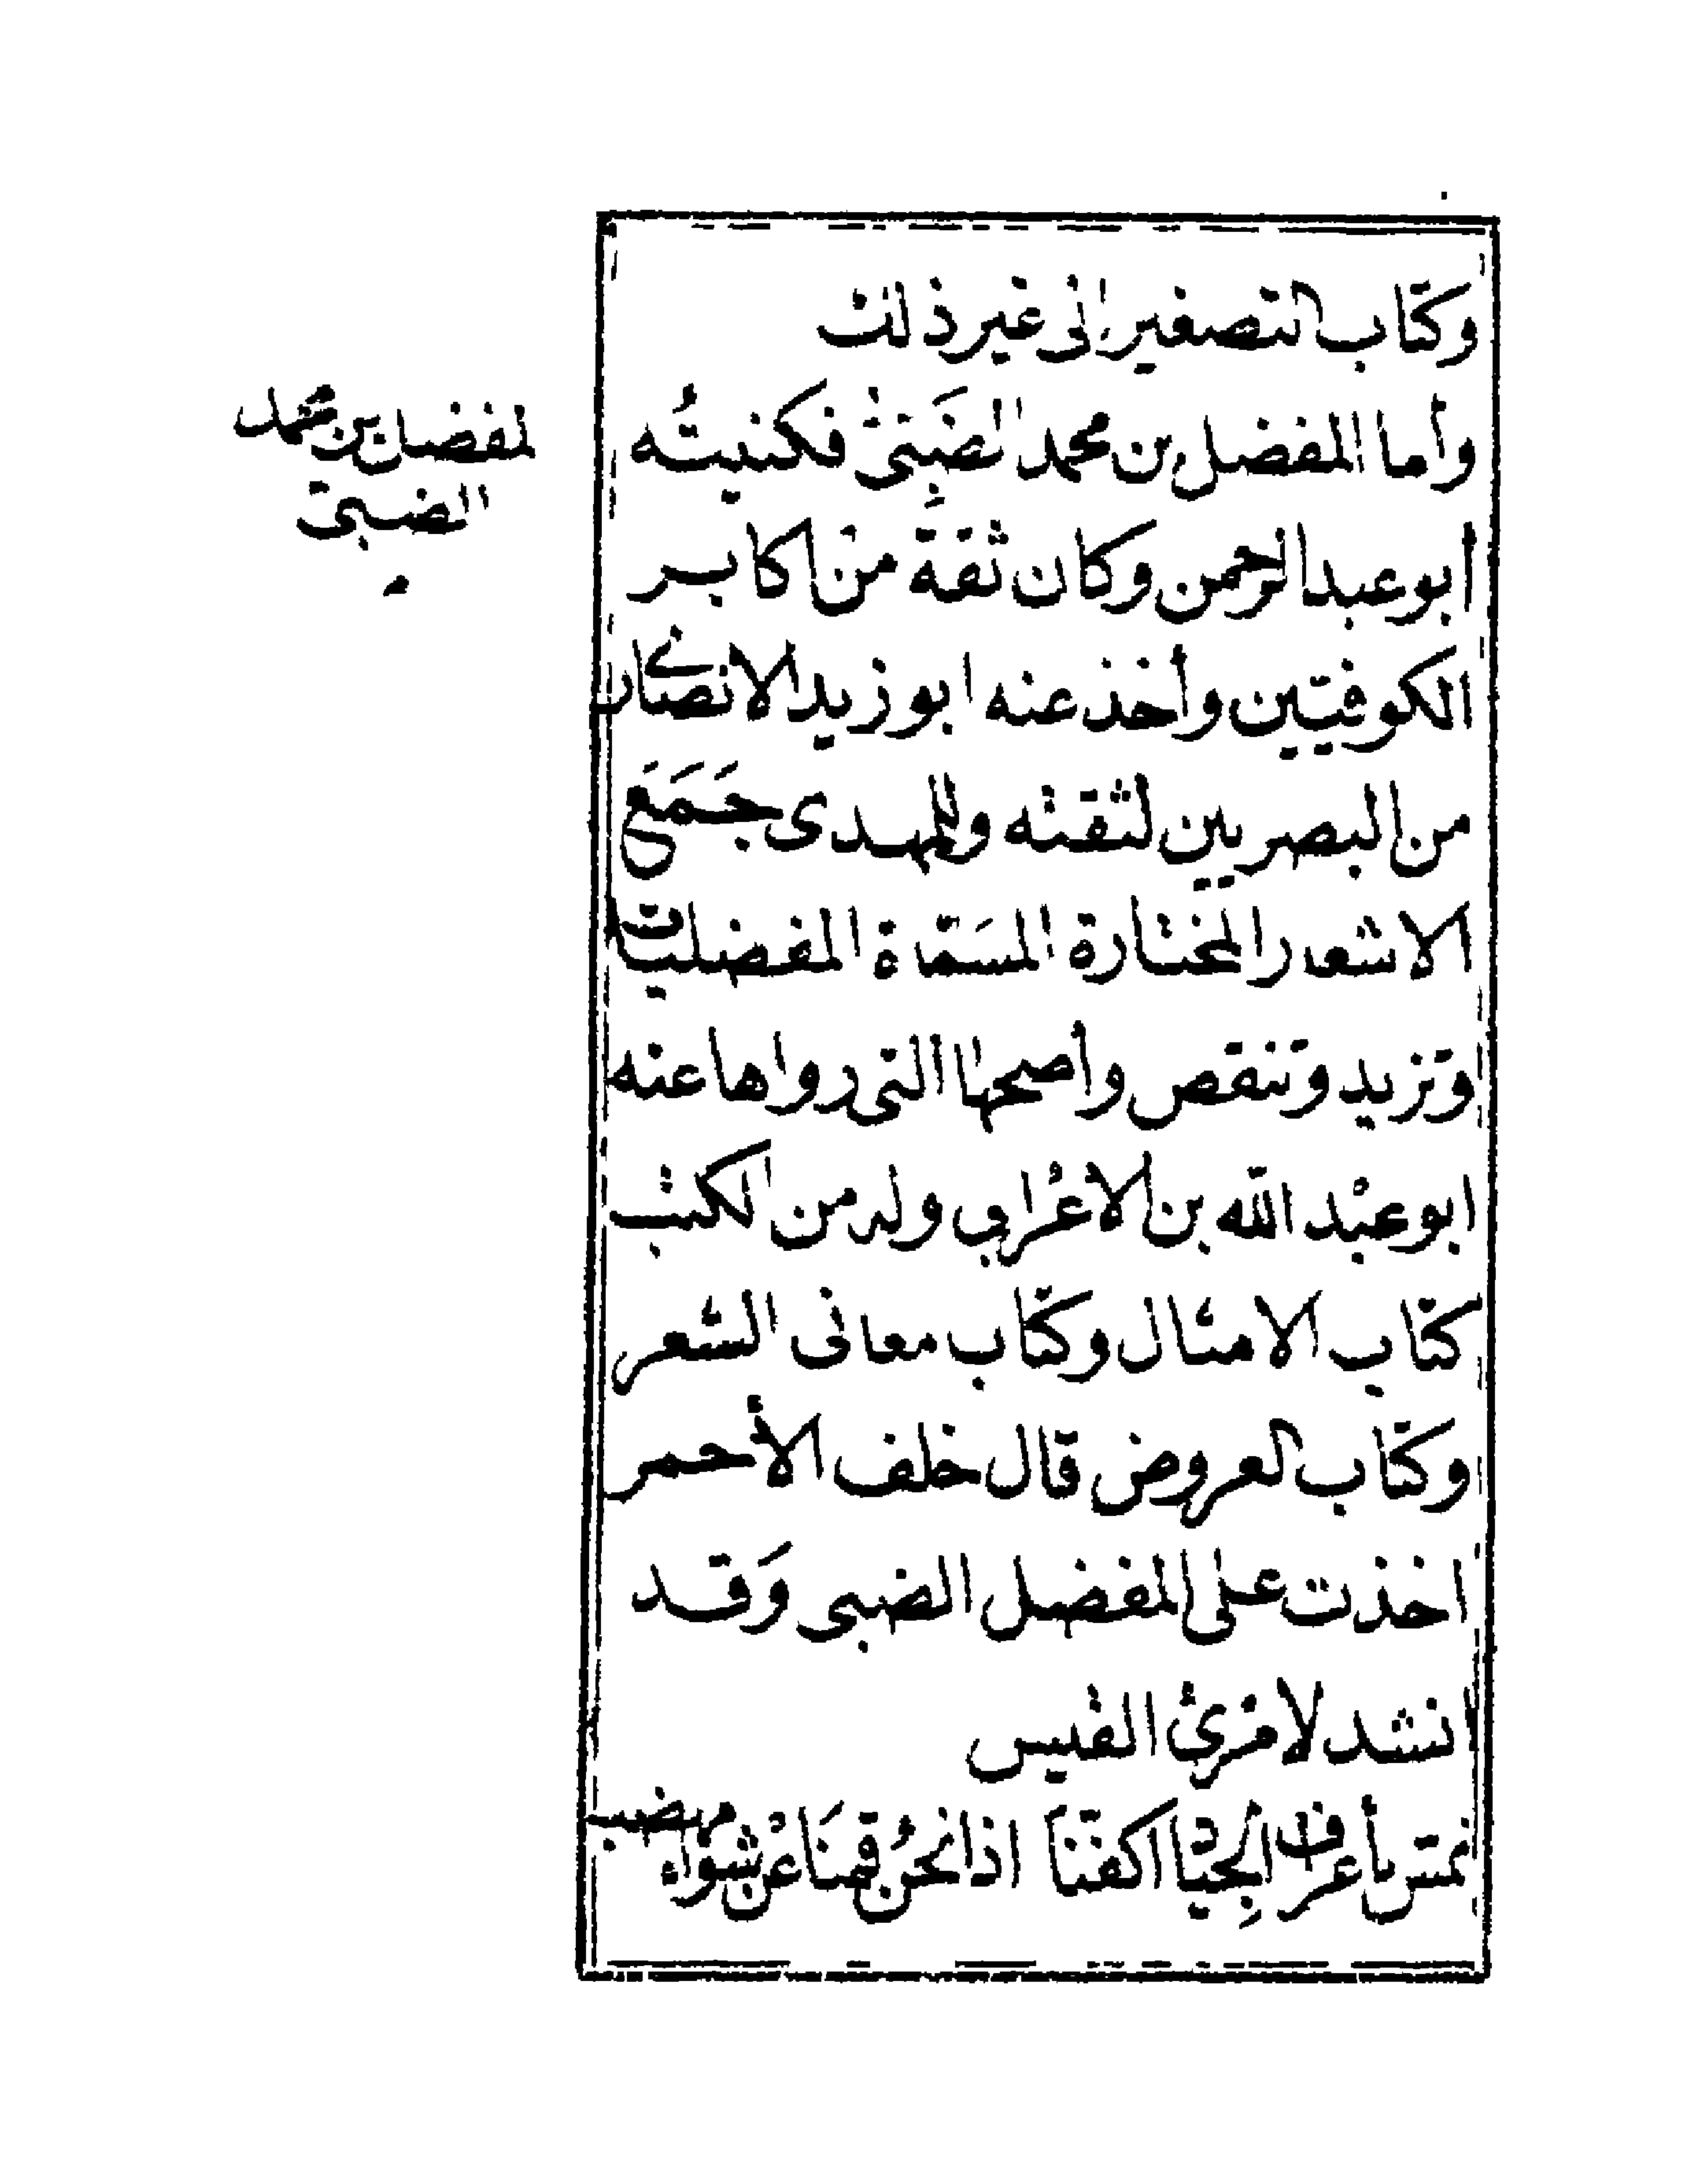 وكتاب التصغير الى غير ذلك
وأما المفضل بن محمد الضَبِّىْ فكنيتُه
أبو عبد الرحمن وكان ثقة من اكابر
الكوفيّين وأخذ عنه ابو زيد الانصارى
من البصريين لثقته وللمهدى جَمَعَ
الاشعار المختارة المسَمّاة المفضليات
وتزيد وتنقص وأصحها التى رواها عنه
ابو عبْد الله بن الاعْرابي وله من الكتب
كتاب الامثال وكتاب معانى الشعر
وكتاب العروض قال خلف الأحمر
اخذت على المفضل الضبى وَقد
انشد لامْرئ القيس
نمش بأعراف الجِياد اكفنَا اذا نحنُ قمنَا عْن شواء مهضب
لمفضل بن محمد
الضبىّ